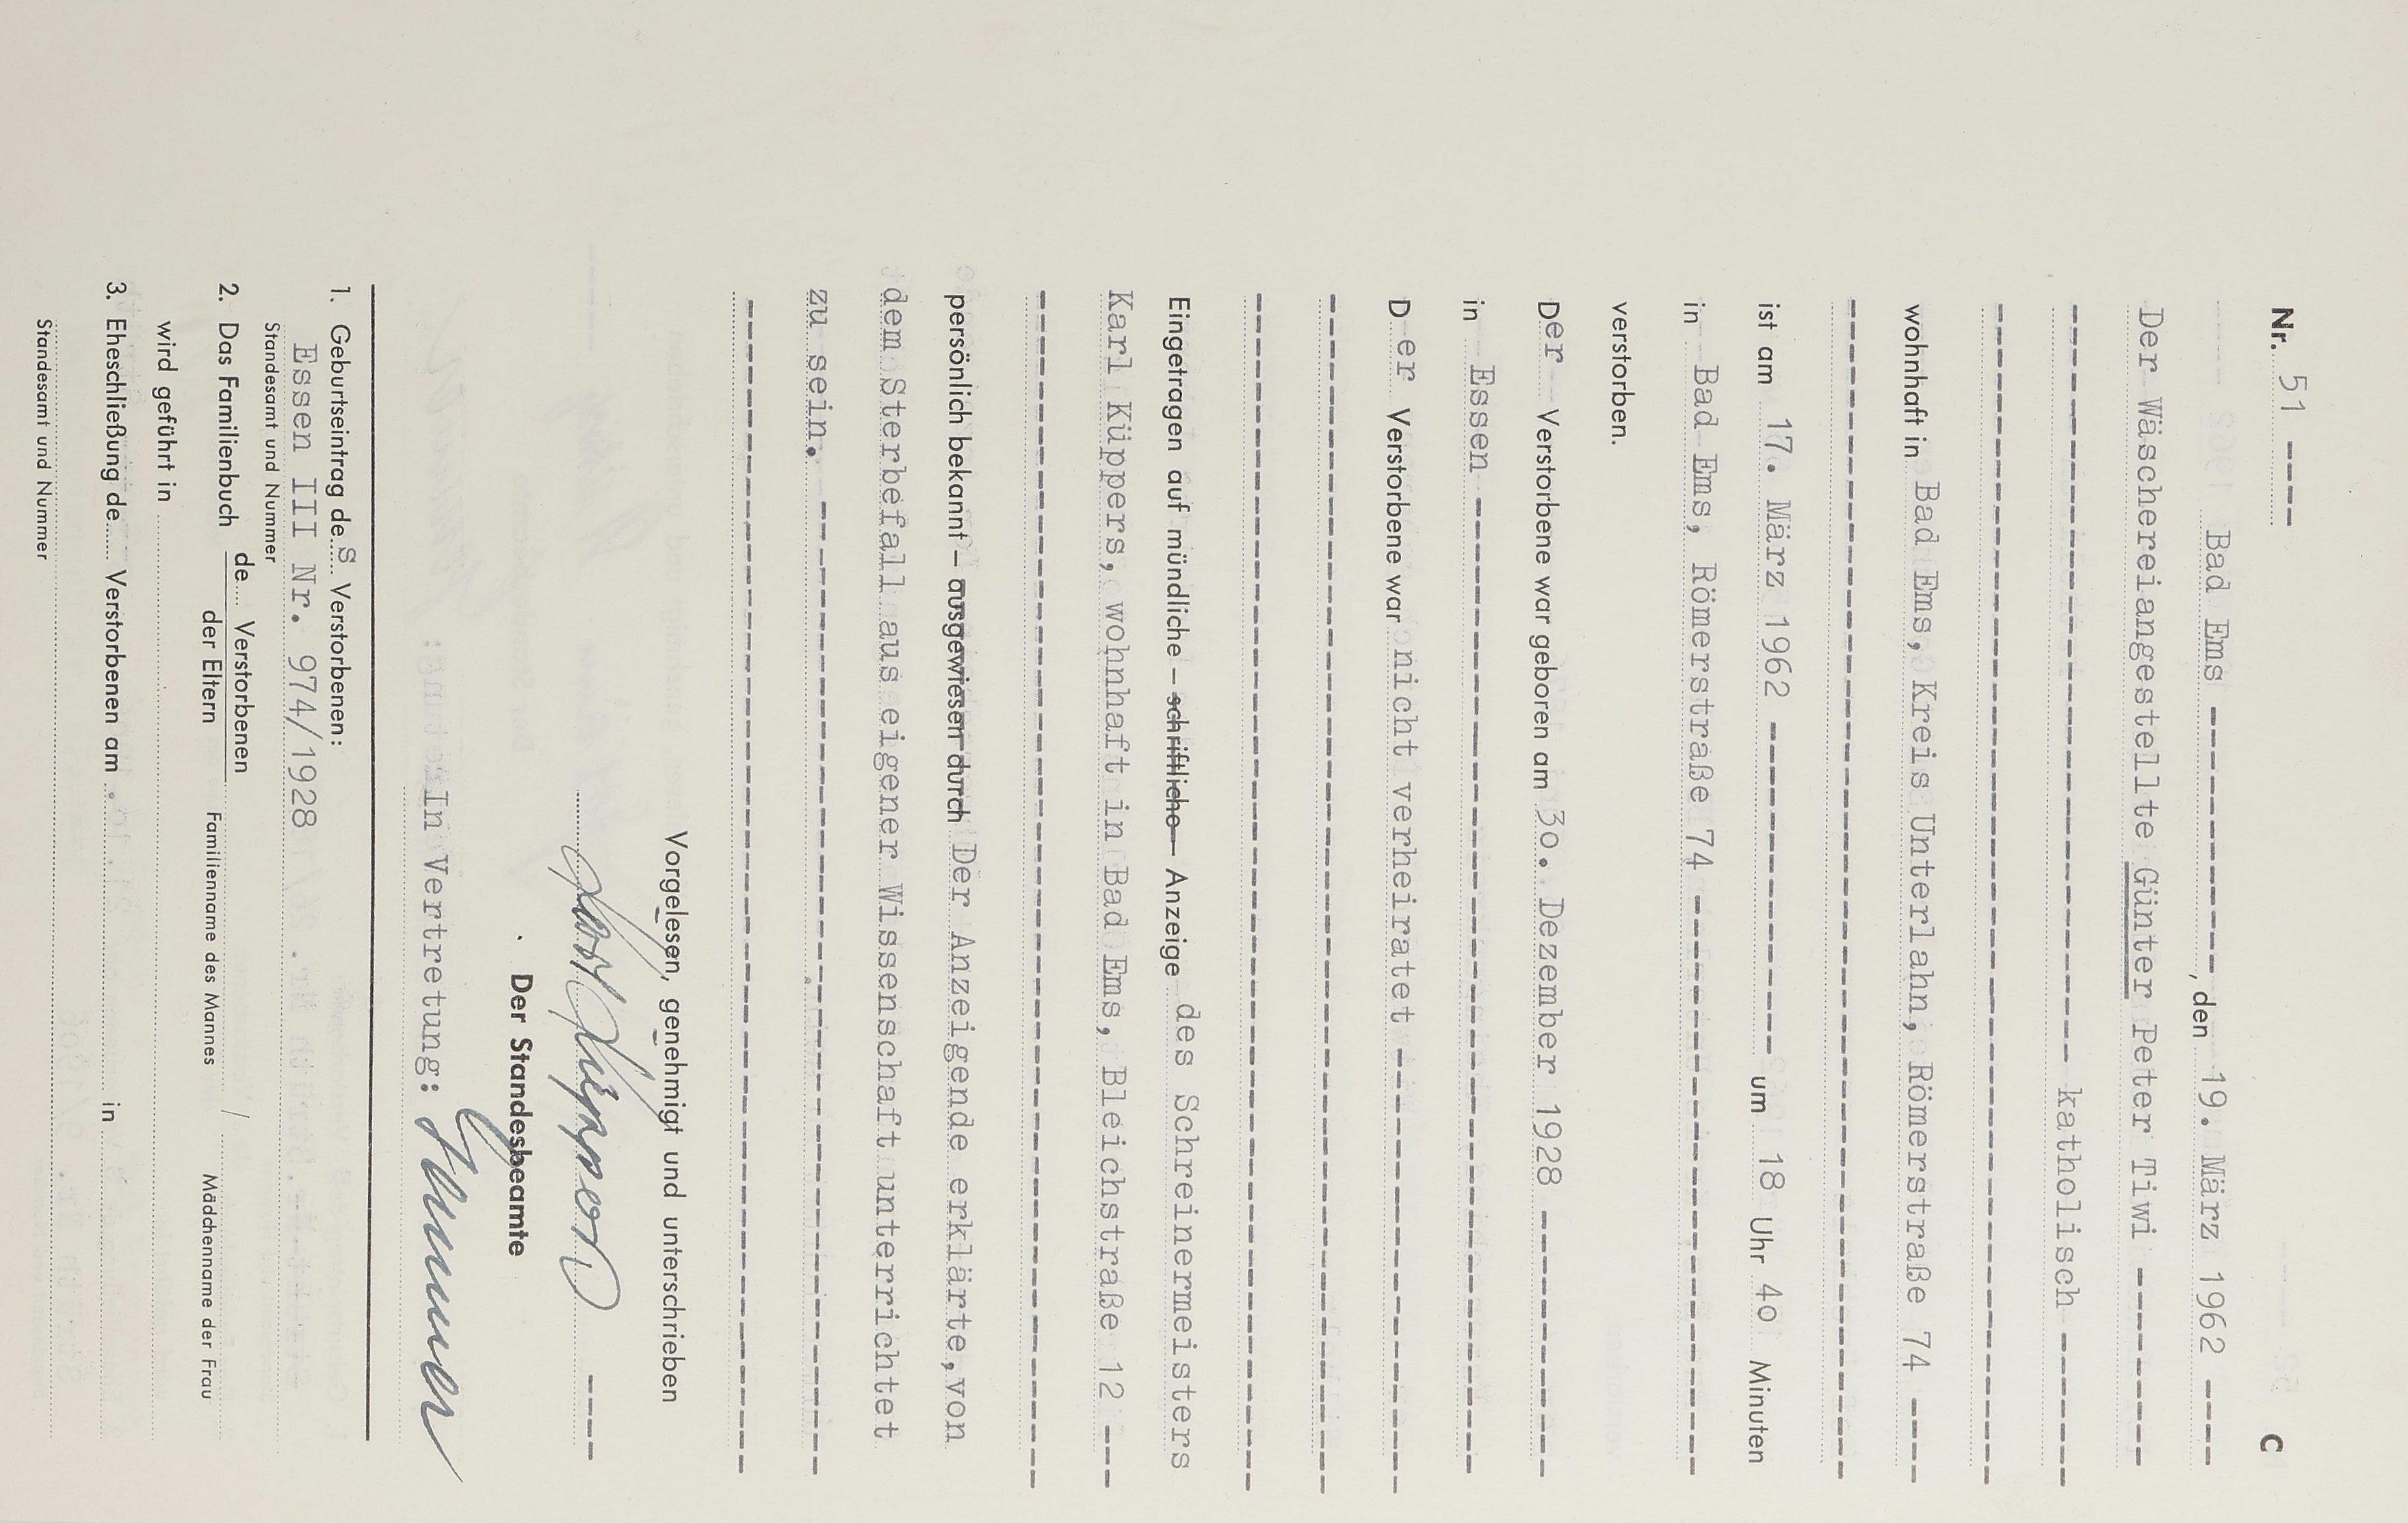 Nr. 51 ---- C
Bad Ems ------------, den 19. März 1962 ----
Der Wäschereiangestellte Günter Peter Tiwi ---------
----------------------------------- katholisch -------
-----------------------------------------------------
wohnhaft in Bad Ems, Kreis Unterlahn, Römerstraße 74 ----
-----------------------------------------------------
ist am 17. März 1962 --------------- um 18 Uhr 4o Minuten
in Bad Ems, Römerstraße 74 --------------------------
verstorben.
Der Verstorbene war geboren am 3o. Dezember 1928 ------------
in Essen --------------------------------------------
Der Verstorbene war nicht verheiratet --------------------
-----------------------------------------------------
-----------------------------------------------------
Eingetragen auf mündliche – schriftliche – Anzeige des Schreinermeisters
Karl Küppers, wohnhaft in Bad Ems, Bleichstraße 12 ---
-----------------------------------------------------
persönlich bekannt – ausgewiesen durch Der Anzeigende erklärte, von
dem Sterbefall aus eigener Wissenschaft unterrichtet
zu sein. --------------------------------------------
-----------------------------------------------------
Vorgelesen, genehmigt und unterschrieben
Karl Küppers ----
Der Standesbeamte
In Vertretung:
1. Geburtseintrag des Verstorbenen:
Essen III Nr. 974/1928
Standesamt und Nummer
2. Das Familienbuch de.... Verstorbenen
der Eltern
/
Familienname des Mannes Mädchenname der Frau
wird geführt in
3. Eheschließung de..... Verstorbenen am in
Standesamt und Nummer